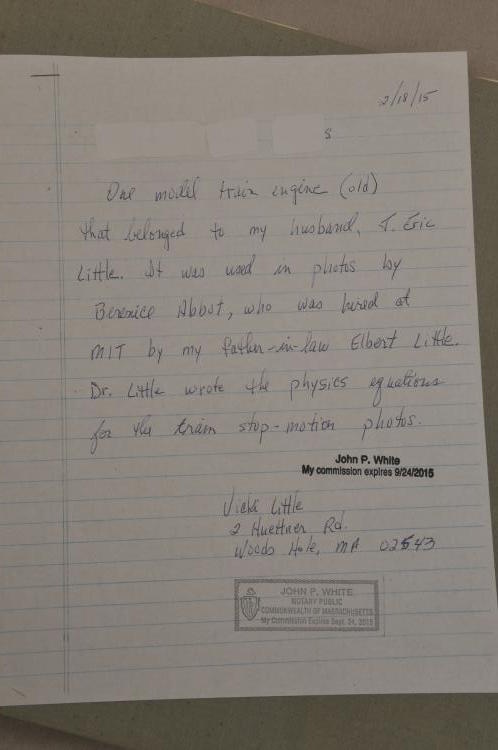 2/18/15
s
One model train engine (old)
that belonged to my husband, J. Eric
Little. It was used in photos by
Berenice Abbot, who was hired at
MIT by my father-in-law Elbert Little.
Dr. Little wrote the physics equations
for the train stop-motion photos.
John P. White
My commission expires 9/24/2015
Vicki Little
2 Huettner Rd.
Woods Hole, MA 02543
JOHN P. WHITE
NOTARY PUBLIC
COMMONWEALTH OF MASSACHUSETTS
My Commission Expires Sept. 24, 2015